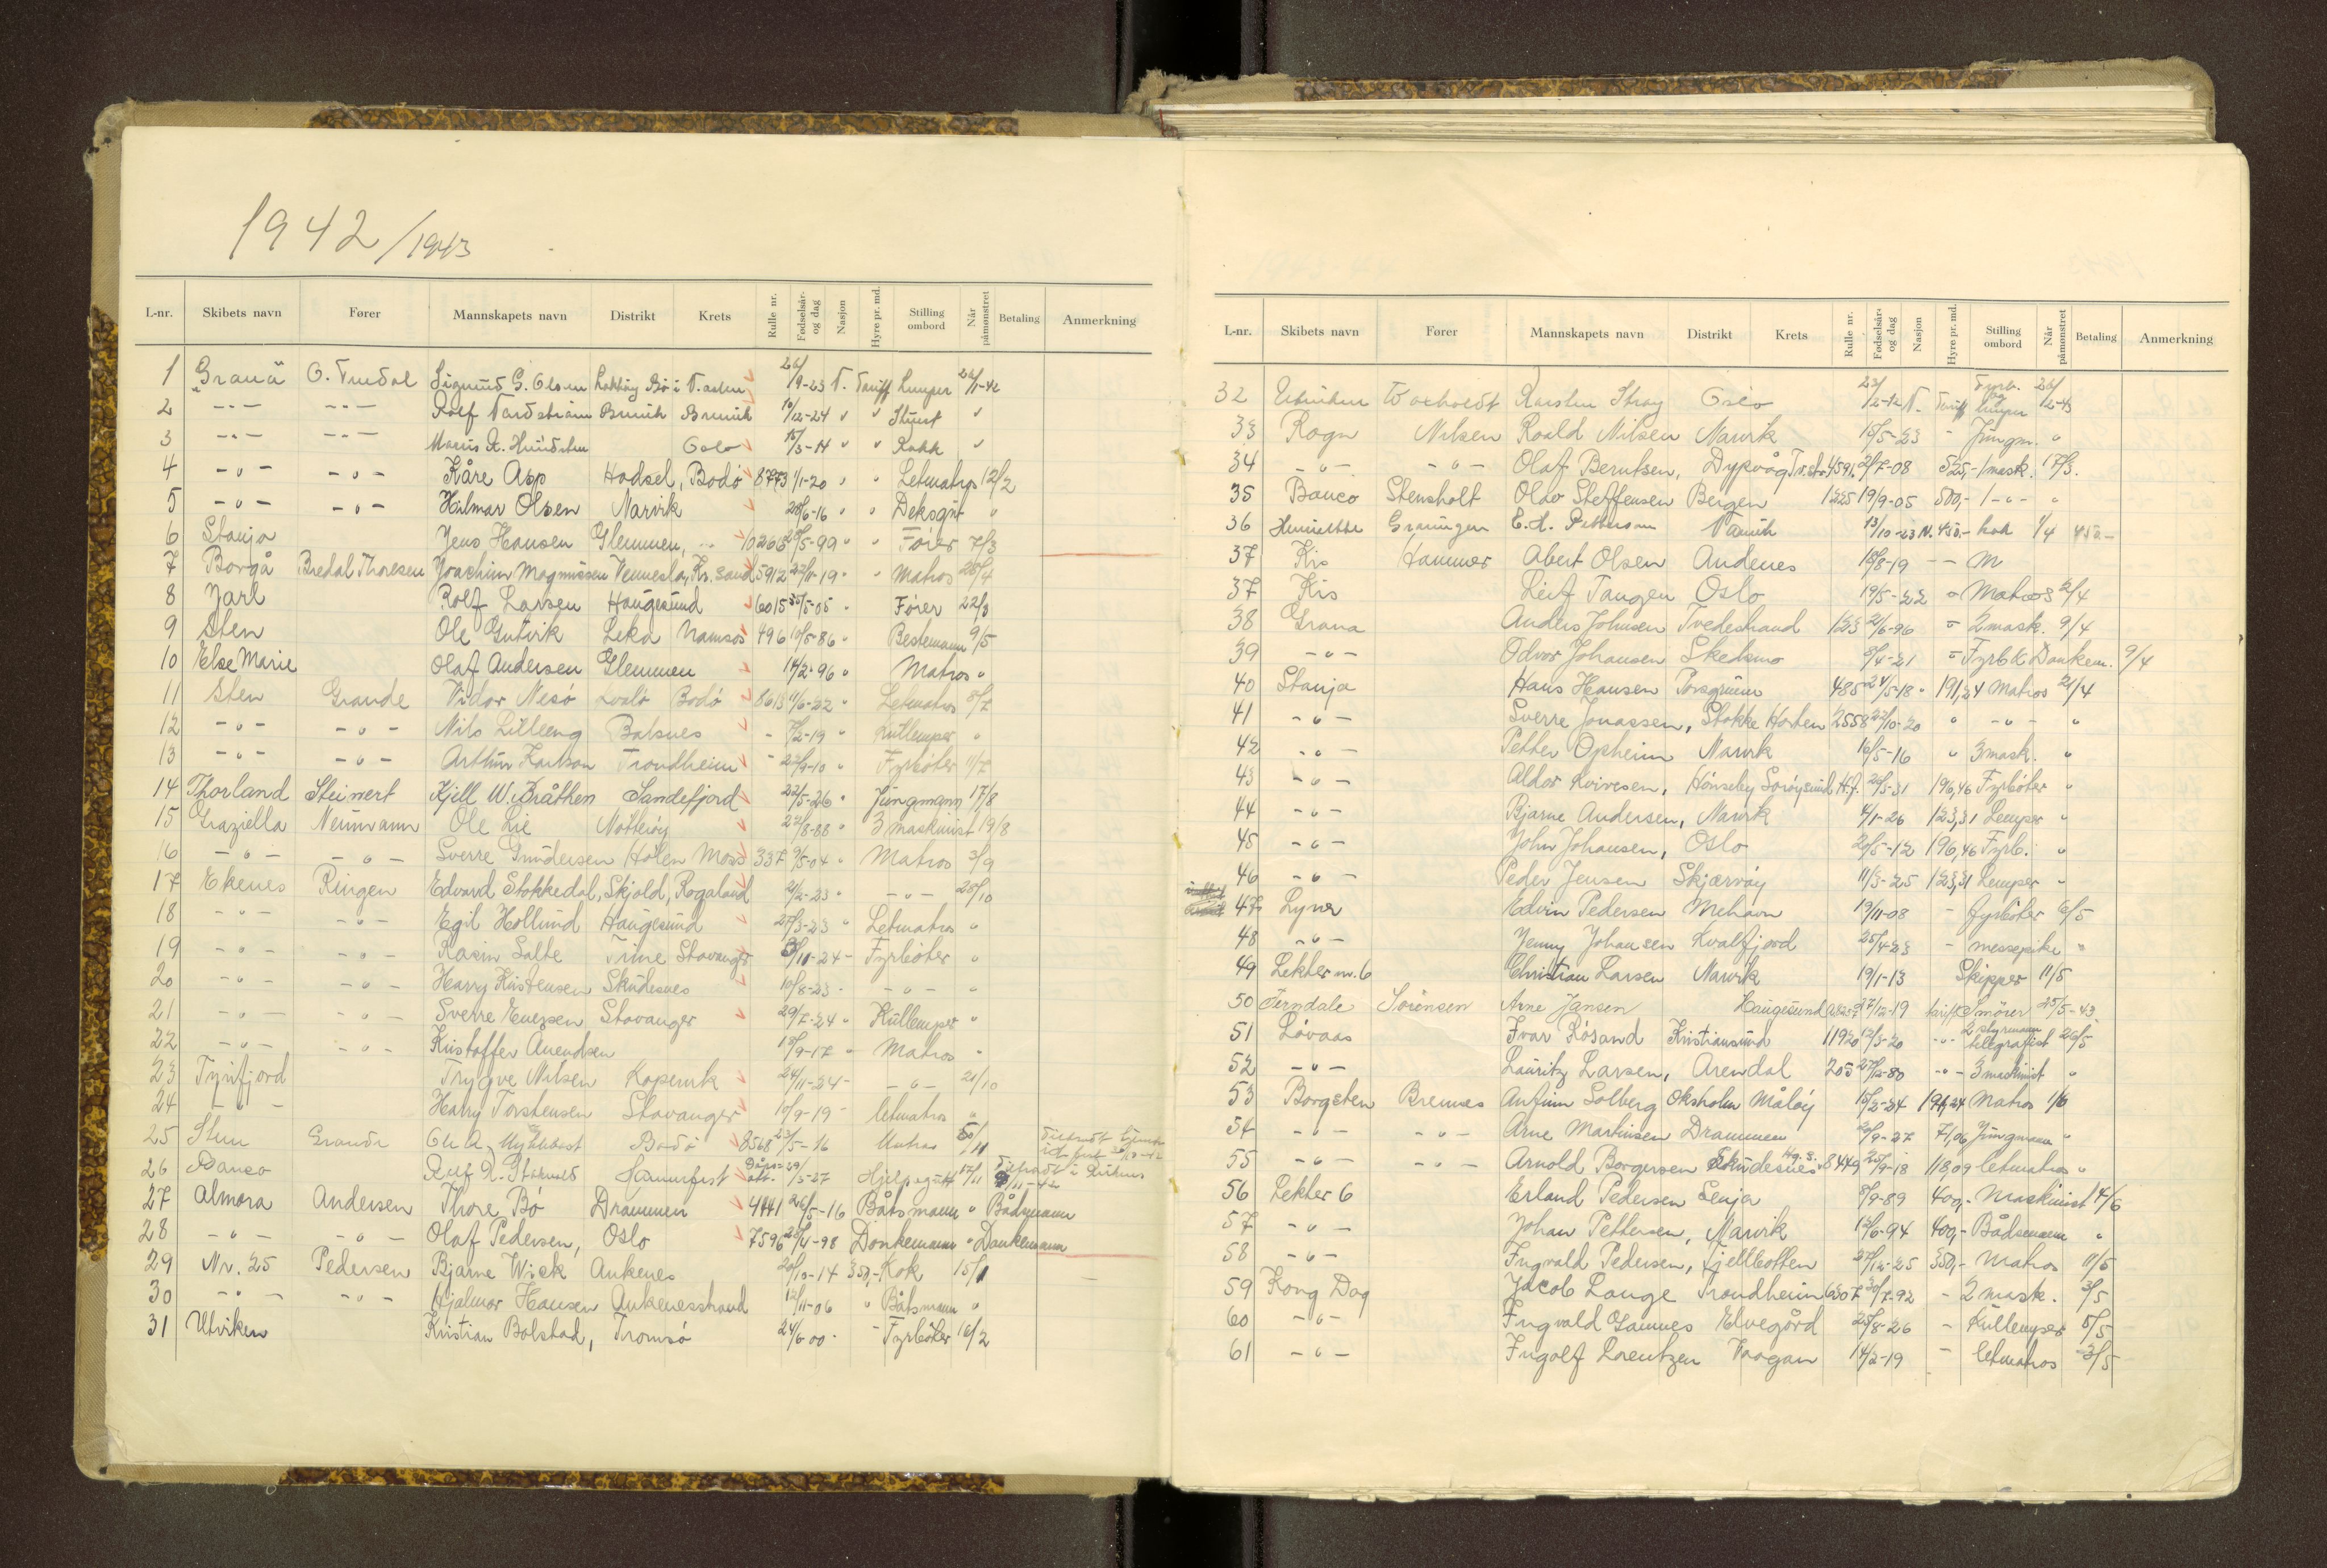 1942/1943
L-nr. Skibets navn Fører Mannskapets navn Distrikt Krets Rulle nr. Fødselsår- og dag Nasjon Hyre pr. md. Stilling ombord Når påmønstret Betaling Anmerkning
1 "Grana" O. Sigmund G. Olsen Bø i V. 26/9-23 N. Tariff Lemper 26/1-42
2 -"- -"- Rolf 10/12-24 " " "
3 -"- -"- Oslo 15/3-14 " " Kokk "
4 -"- -"- Kåre Asp Hadsel, Bodø 8773 1/1-20 " " Letmatros 12/2
5 -"- -"- Hilmar Olsen Narvik 28/6-16 " " Deksgut "
6 Stanja Jens Hansen Glemmen, -- 10265 28/5-99 " " Fører 7/3
7 Borgå Bredal Thoresen Joachim Magnussen Vennesla, Kr. sand 5912 22/11-19 " " Matros 28/4
8 Jarl Rolf Larsen Haugesund 6015 30/5-05 " Fører 22/3
9 Sten Ole Gutvik Leka Namsos 496 10/5-86 " Bestemann 9/5
10 Else Marie Olaf Andersen Glemmen 14/2-96 " Matros "
11 Sten Grande Vidar Nesø Bodø 8613 11/6-22 " Letmatros 8/7
12 -"- -"- Nils Lilleeng Balsnes - 7/2-19 " Kullemper "
13 -"- -"- Arthur Karlson Trondheim - 22/9-10 " Fyrbøter 11/7
14 Thorland Steinert Kjell W. Bråthen Sandefjord 22/5-26 " Jungmann 17/8
15 Graziella Neumann Ole Lie Nøtterøy 23/8-88 " 3 maskinist 19/8
16 -"- -"- Sverre Gundersen Hølen Moss 337 9/5-04 " Matros 3/9
17 Ekenes Ringen Edvard Stokkedal, Skjold, Rogaland 2/2-23 " -"- 28/10
18 -"- -"- Egil Hollund Haugesund 27/3-23 " Letmatros "
19 -"- -"- Karin Salte Time Stavanger 3/11-24 - Fyrbøter "
20 -"- -"- Harry Kristensen Skudesnes 10/8-23 - -"- "
21 -"- -"- Sverre Stavanger 29/7-24 " Kullemper "
22 -"- -"- Kristoffer Amundsen 18/9-17 " Matros "
23 Tyrifjord Trygve Nilsen Kopervik 24/11-24 - -"- 21/10
24 -"- Harry Torstensen Stavanger 10/9-19 - letmatros "
25 Sten Grande Ole A. Myklebost Bodø 8568 23/5-16 Matros
26 Banco Hammerfest 29/3-27 Hjelpegutt 17/11
27 Almora Andersen Thore Bø Drammen 4441 26/5-16 Båtsmann " Båtsmann
28 -"- -"- Olaf Pedersen, Oslo 7596 28/4-98 Donkemann " Donkemann
29 Nr. 25 Pedersen Bjarne Wick Ankenes 20/10-14 350,- Kok 15/1
30 -"- -"- Hjalmar Hansen Ankenesstrand 12/11-06 " Båtsmann "
31 Utviken Kristian Bolstad, Tromsø 24/6-00 - - Fyrbøter 16/2
L-nr. Skibets navn Fører Mannskapets navn Distrikt Krets Rulle nr. Fødselsår- og dag Nasjon Hyre pr. md. Stilling ombord Når påmønstret Betaling Anmerkning
32 Utviken Karsten Stray Oslo N. Tariff Fyrb. og lemper
33 Rogn Nilsen Roald Nilsen Narvik 15/5-23 - Jungm. "
34 -"- -"- Olaf Berntsen, Dypvåg Tv.str. 4591 2/7-08 525,- 1 mask. 17/3.
35 Banco Stensholt Olav Steffensen Bergen 1225 19/9-05 500,- 1 -"- "
36 Henriette Grauingen E. A. Petterson 13/10-23 N. 450.- kok 1/4 450.-
37 Kis Hammer Abert Olsen Andenes 18/8-19 -- M
37 Kis Leif Tangen Oslo 19/5-22 " Matros 2/4
38 Grana Anders Johnsen Tvedestrand 123 2/6-96 " 2 mask. 9/4
39 -"- Odvar Johansen Skedsmo 8/4-21 " Fyrb & Donkem. 9/4
40 Stanja Hans Hansen Porsgrunn 485 24/5-18 " 191,24 Matros 21/4
41 -"- Sverre Jonassen, Stokke Horten 2558 22/10-20 " -"- "
42 -"- Petter Opheim Narvik 16/5-16 " 3 mask. "
43 -"- Aldor Kvivesen, Hønseby Sørøysund H.f. 26/5-21 196,46 Fyrbøter "
44 -"- Bjarne Andersen, Narvik 4/1-26 123,31 Lemper "
45 -"- John Johansen, Oslo 20/5-12 196,46 Fyrb. "
46 -"- Peder Jensen Skjærvøy 11/3-25 123,31 Lemper "
47 Lyner Edvin Pedersen Mehavn 19/11-08 - fyrbøter 6/5
48 -"- Jenny Johansen Kvalfjord 25/4-23 - messepike "
49 Lekter nr. 6 Christian Larsen Narvik 19/1-13 Skipper 11/5
50 Ferndale Sørensen Arne Jansen Haugesund 27/12-19 tariff Smører 25/5-43.
51 Løvaas Ivar Røsand Kristiansund 11920 12/3-20 -"- 2 styrmann telegrafist 26/5
52 -"- Lauritz Larsen, Arendal 205 27/12-80 -"- 3 maskinist "
53 Borgsten Brennes Anfinn Solberg Oksholm Måløy 15/2-24 191,24 Matros 1/6
54 -"- -"- Arne Martinsen Drammen 20/9-27 71,06 Jungmann "
55 -"- -"- Arnold Borgersen Skudesnes Hg.s. 8449 25/9-18 118,09 letmatros "
56 Lekter 6 Erland Pedersen Senja 8/9-89 400,- Maskinist 4/6
57 -"- Johan Pettersen, Narvik 12/6-94 400,- Bådsmann "
58 -"- Ingvald Pedersen, Fjellbotten 27/12-25 350,- Matros 11/5
59 Kong Dag Jacob Lange Trondheim 6307 30/7-92 - 2 mask. 3/5
60 -"- Ingvald Gamnes Elvegård 28/8-26 - Kullemper 5/5
61 -"- Ingolf Lorentzen Vaagan 14/2-19 - letmatros 3/5